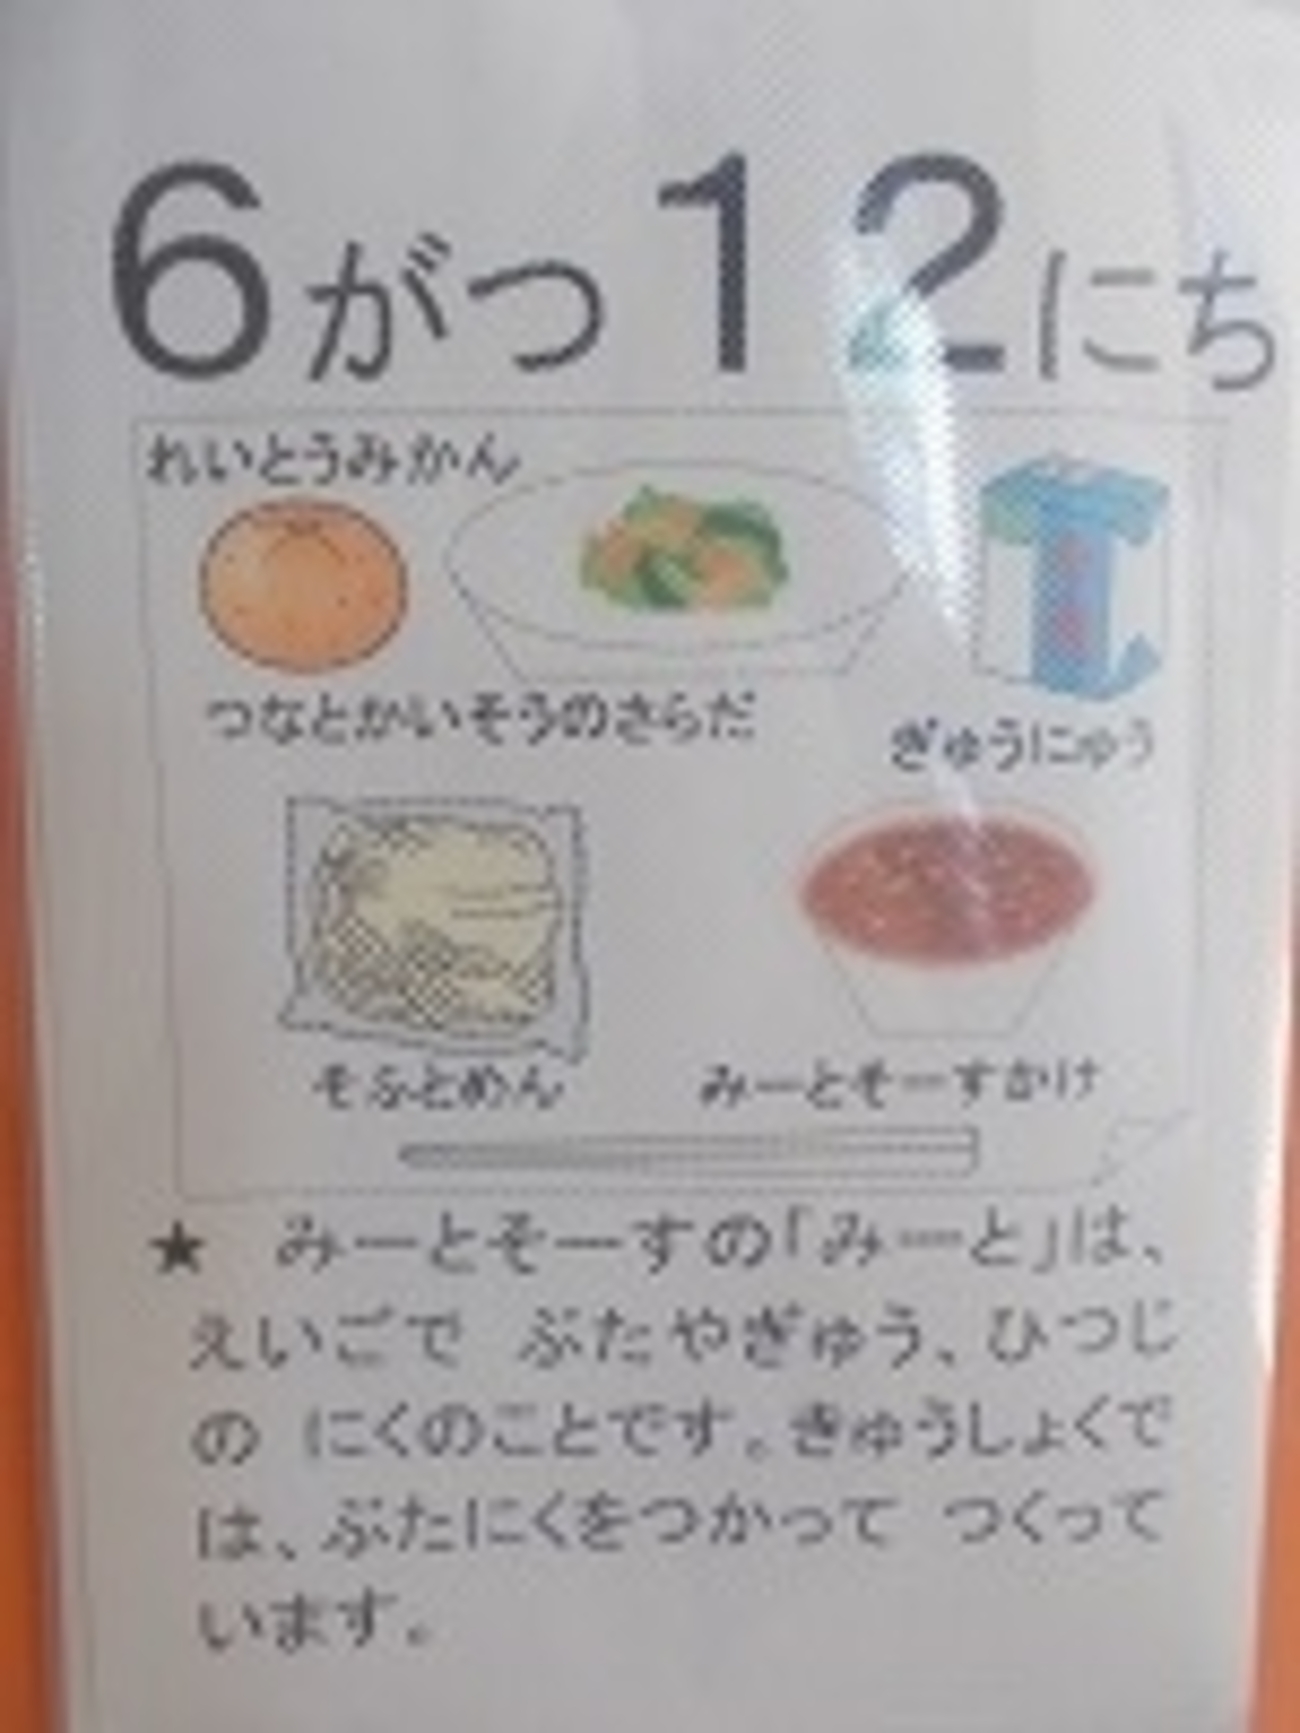 6がつ12にち
れいとうみかん
つなとかいそうのさらだ
ぎゅうにゅう
そふとめん
みーとそーすかけ
★ みーとそーすの「みーと」は、
えいごで ぶたやぎゅう、ひつじ
の にくのことです。きゅうしょくで
は、ぶたにくをつかって つくって
います。